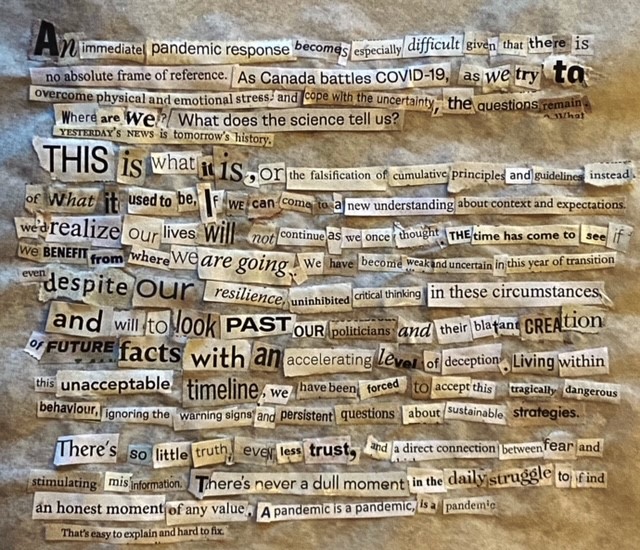 An immediate pandemic response becomes especially difficult given that there is
no absolute frame of reference. As Canada battles COVID-19, as we try to
overcome physical and emotional stress and cope with the uncertainty, the questions remain.
Where are we? What does the science tell us?
YESTERDAY'S NEWS is tomorrow's history.
THIS is what it is, or the falsification of cumulative principles and guidelines instead.
of What it used to be, If WE can come to a new understanding about context and expectations.
we'd realize our lives will not continue as we once thought, THE time has come to see if
We BENEFIT from where We are going. We have become weak and uncertain in this year of transition
even despite our resilience, uninhibited critical thinking in these circumstances,
and will to look PAST OUR politicians and their blatant CREAtion
of FUTURE facts with an accelerating level of deception. Living within
this unacceptable timeline, we have been forced to accept this tragically dangerous
behaviour, ignoring the warning signs and persistent questions about sustainable strategies.
There's so little truth, even less trust, and a direct connection between fear and
stimulating misinformation. There's never a dull moment in the daily struggle to find
an honest moment of any value. A pandemic is a pandemic, is a pandemic
That's easy to explain and hard to fix.